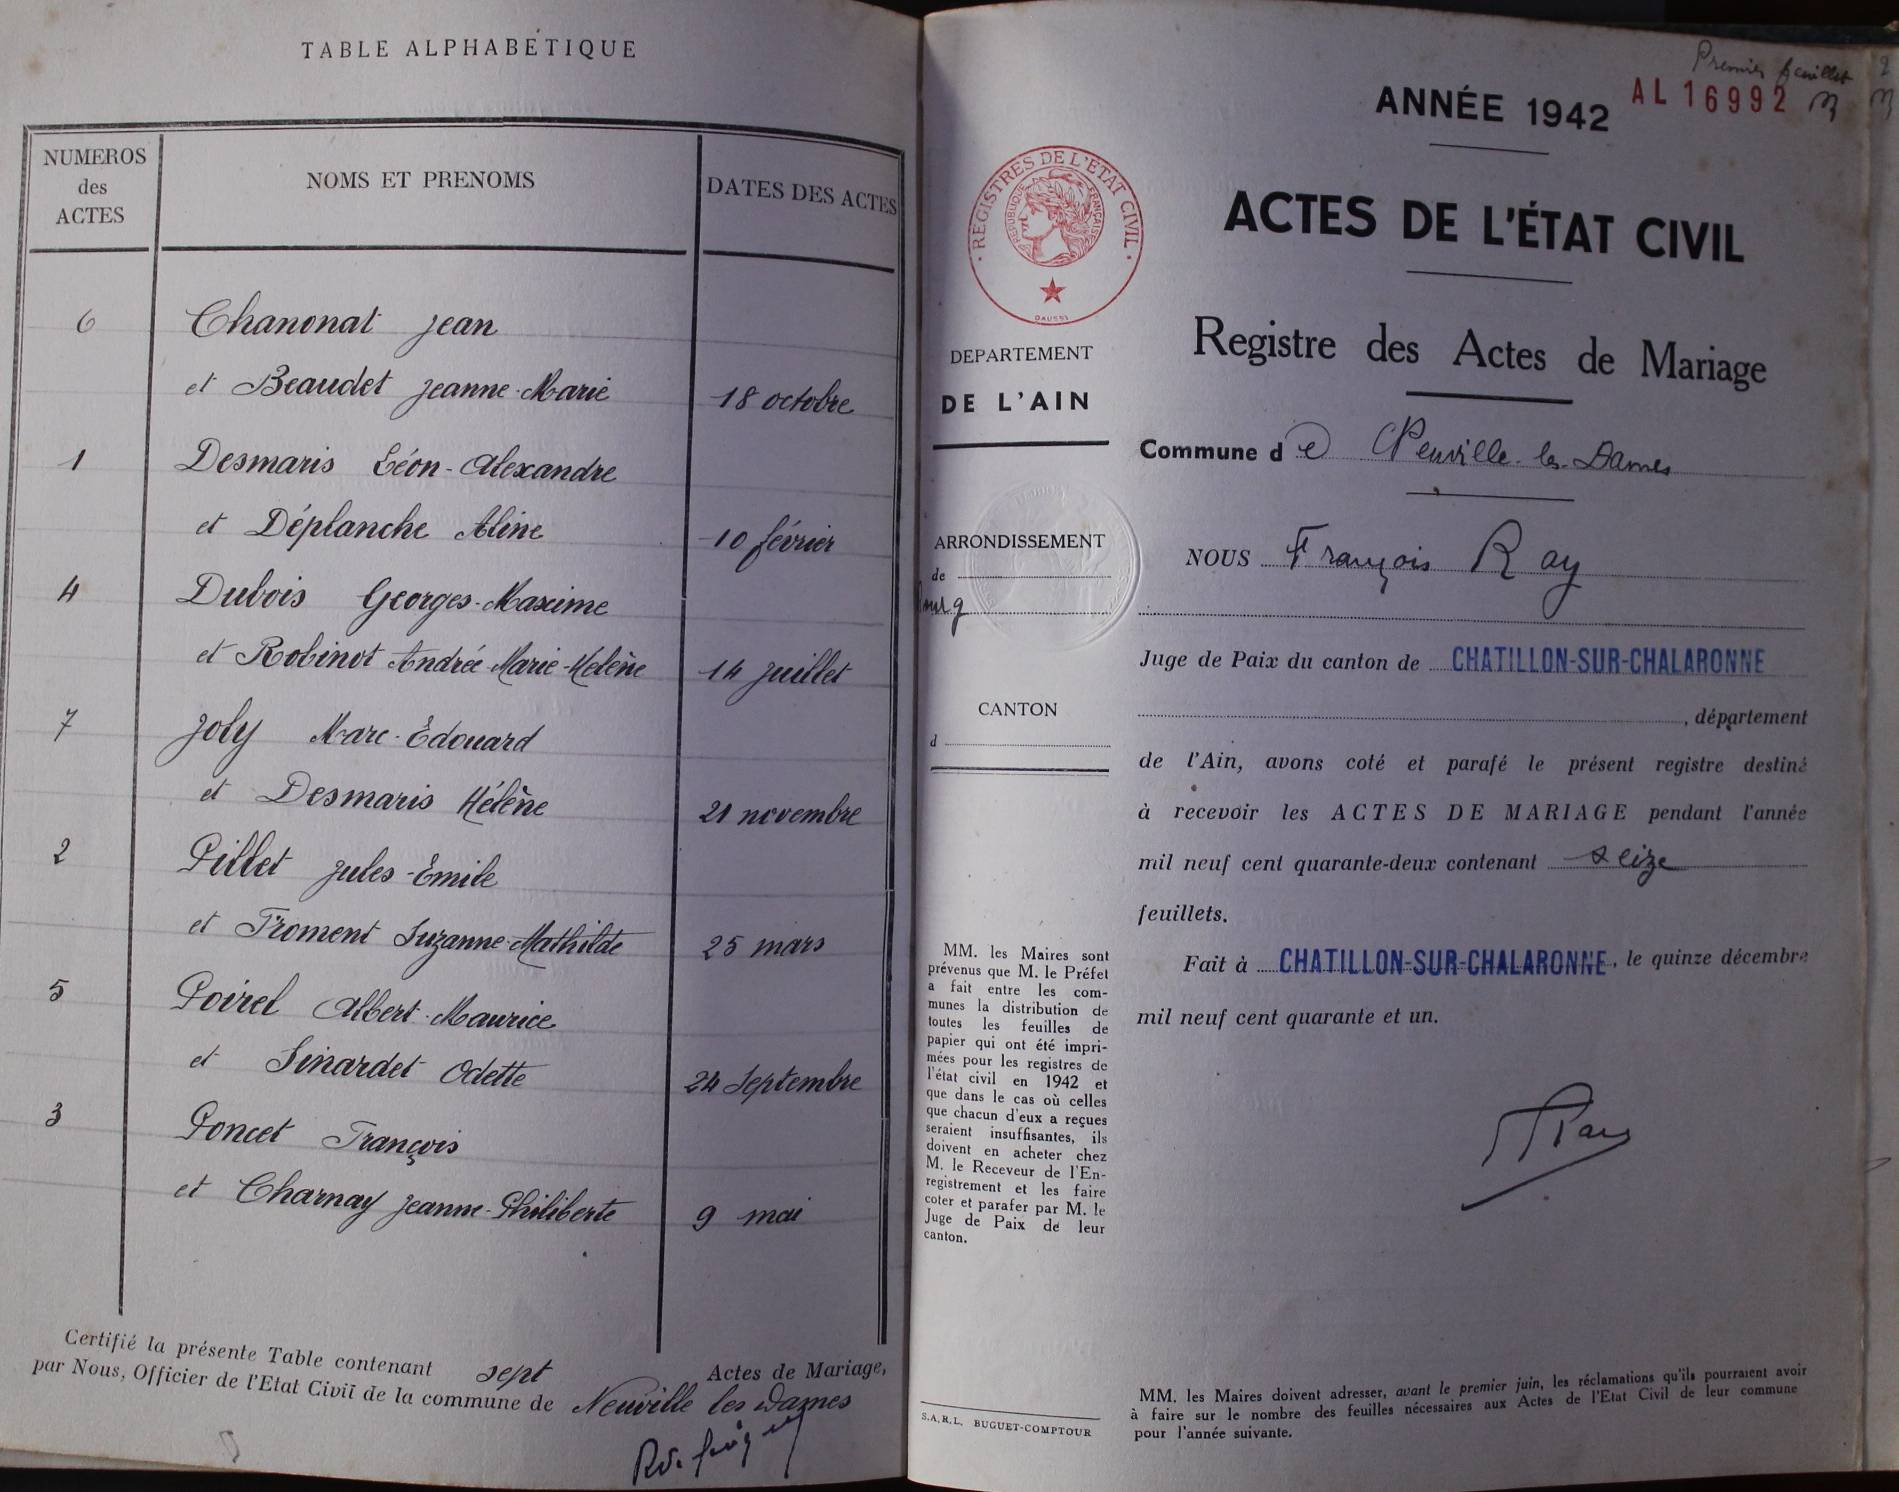 TABLE ALPHABÉTIQUE
NUMEROS
des
ACTES
NOMS ET PRENOMS
DATES DES ACTES
6 Chanonat Jean
et Beaudet Jeanne-Marie 18 octobre
1 Desmaris Léon-Alexandre
et Déplanche Aline 10 février
4 Dubois Georges-Maxime
et Robinot Andrée-Marie-Helène 14 juillet
7 Joly Marc-Edouard
et Desmaris Hélène 21 novembre
2 Pillet Jules-Emile
et Froment Suzanne-Mathilde 25 mars
5 Poirel Albert-Maurice
et Sinardet Odette 24 Septembre
3 Poncet François
et Charnay Jeanne-Philiberte 9 mai
Certifié la présente Table contenant sept Actes de Mariage,
par Nous, Officier de l'Etat Civil de la commune de Neuville les Dames
Premier feuillet
ANNÉE 1942
AL 16992
ACTES DE L'ÉTAT CIVIL
Registre des Actes de Mariage
Commune de Neuville-les-Dames
NOUS François Ray
Juge de Paix du canton de CHATILLON-SUR-CHALARONNE
, département
de l'Ain, avons coté et parafé le présent registre destiné
à recevoir les ACTES DE MARIAGE pendant l'année
mil neuf cent quarante-deux contenant seize
feuillets.
Fait à CHATILLON-SUR-CHALARONNE, le quinze décembre
mil neuf cent quarante et un.
FRay
MM. les Maires doivent adresser, avant le premier juin, les réclamations qu'ils pourraient avoir
à faire sur le nombre des feuilles nécessaires aux Actes de l'Etat Civil de leur commune
pour l'année suivante.
REGISTRES DE L'ETAT CIVIL
REPUBLIQUE FRANÇAISE
DAUSSY
DEPARTEMENT
DE L'AIN
ARRONDISSEMENT
de
Bourg
CANTON
d
MM. les Maires sont
prévenus que M. le Préfet
a fait entre les com-
munes la distribution de
toutes les feuilles de
papier qui ont été impri-
mées pour les registres de
l'état civil en 1942 et
que dans le cas où celles
que chacun d'eux a reçues
seraient insuffisantes, ils
doivent en acheter chez
M. le Receveur de l'En-
registrement et les faire
coter et parafer par M. le
Juge de Paix de leur
canton.
S.A.R.L. BUGUET-COMPTOUR